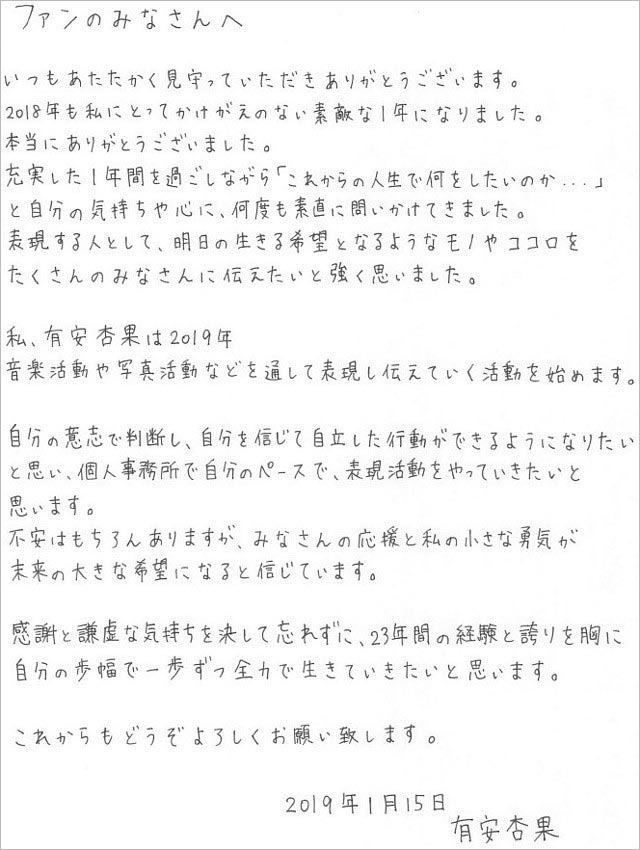 ファンのみなさんへ
いつもあたたかく見守っていただきありがとうございます。
2018年も私にとってかけがえのない素敵な1年になりました。
本当にありがとうございました。
充実した1年間を過ごしながら「これからの人生で何をしたいのか...」
と自分の気持ちや心に、何度も素直に問いかけてきました。
表現する人として、明日の生きる希望となるようなモノやココロを
たくさんのみなさんに伝えたいと強く思いました。
私、有安杏果は2019年
音楽活動や写真活動などを通して表現し伝えていく活動を始めます。
自分の意志で判断し、自分を信じて自立した行動ができるようになりたい
と思い、個人事務所で自分のペースで、表現活動をやっていきたいと
思います。
不安はもちろんありますが、みなさんの応援と私の小さな勇気が
未来の大きな希望になると信じています。
感謝と謙虚な気持ちを決して忘れずに、23年間の経験と誇りを胸に
自分の歩幅で一歩ずつ全力で生きていきたいと思います。
これからもどうぞよろしくお願い致します。
2019年1月15日
有安杏果